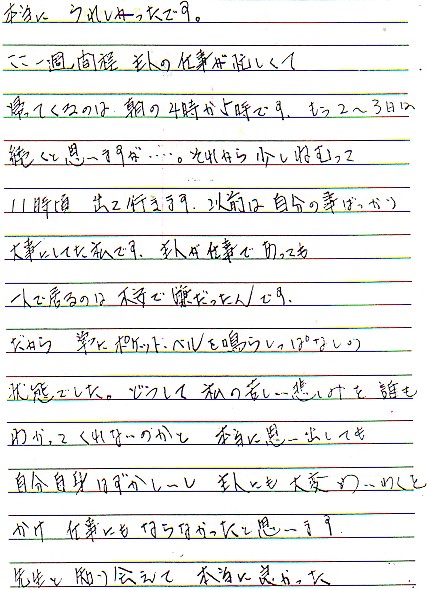 本当に うれしかったです。
ここ一週間程 主人の仕事が忙しくて
帰ってくるのは 朝の4時か5時です。もう2〜3日は
続くと思いますが……。それから少しねむって
11時頃 出て行きます。以前は自分の事ばっかり
大事にしてた私です。主人が仕事であっても
一人で居るのは 不安で嫌だったんです。
だから 常にポケット・ベルを鳴らしっぱなしの
状態でした。どうして私の苦しい悲しみを誰も
わかってくれないのかと 本当に思い出しても
自分自身はずかしいし 主人にも大変めいわくを
かけ 仕事にもならなかったと思います。
先生と知り会えて 本当に良かった